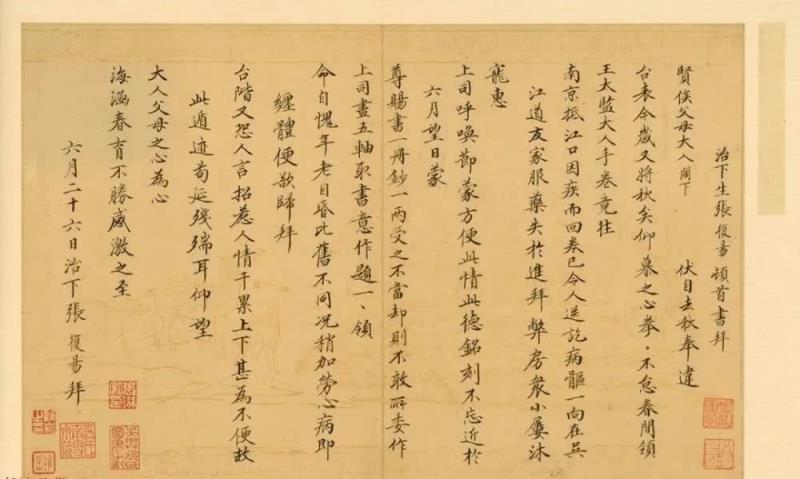 治下生張復昜頓首書拜
賢侯父母大人閣下 伏自去秋奉違
台表今歲又將秋矣仰慕之心拳〻不怠春間領
王太監大人手卷竟往
南京抵江口因疾而回卷已令人送訖病軀一向在吳
江道友家服藥失於進拜弊房衆小屢沐
寵惠
上司呼喚節蒙方便此情此德銘刻不忘近於
六月望日蒙
尊賜書一冊鈔一兩受之不當却則不敢所委作
上司畫五軸取書意作題一〻領
命自愧年老目昏比舊不同况稍加勞心病即
纏體便欲歸拜
台階又恐人言招惹人情干累上下甚為不便故
此遁迹苟延殘喘耳仰望
大人父母之心為心
海涵春育不勝感激之至
六月二十六日治下張復昜拜